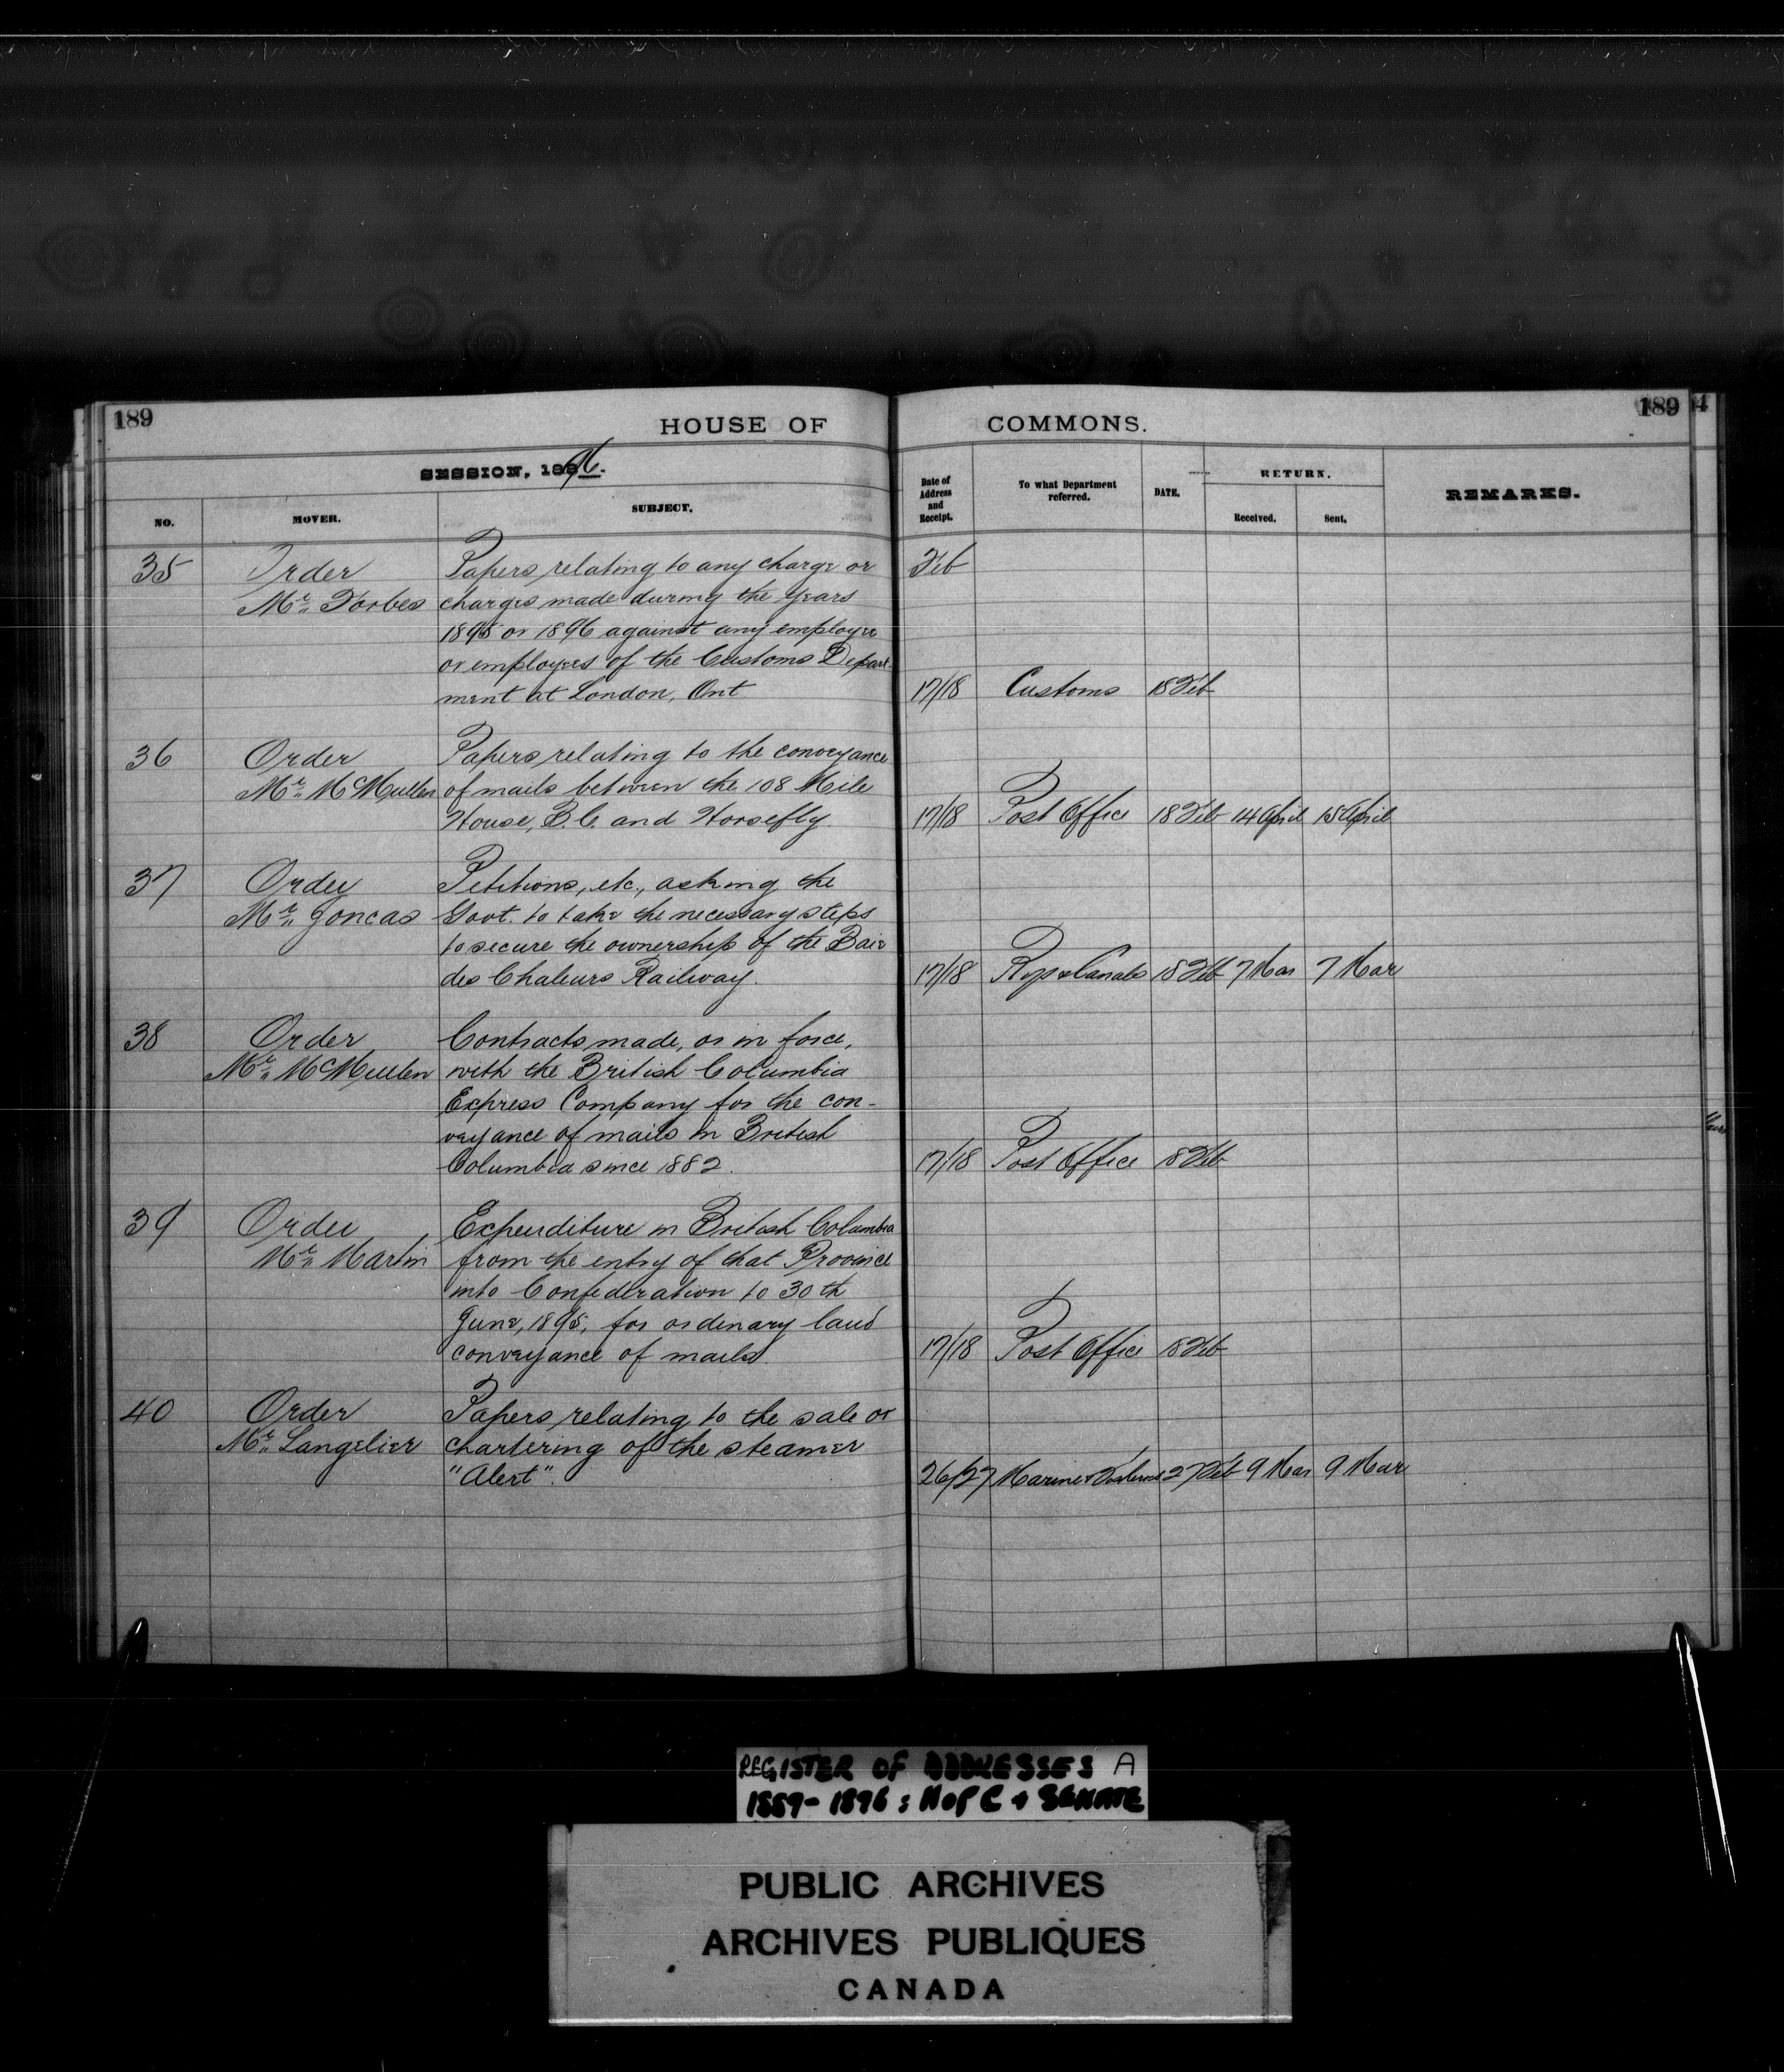 189
HOUSE OF COMMONS.
189
4
SESSION, 1896.
NO. MOVER. SUBJECT. Date of Address and Receipt. To what Department referred. DATE. RETURN. Received. Sent. REMARKS.
35 Order Papers relating to any charge or Feb
Mr. Forbes charges made during the years
1895 or 1896 against any employee
or employees of the Customs Depart-
ment at London, Ont 17/18 Customs 18 Feb
36 Order Papers relating to the conveyance
Mr. McMullen of mails between the 108 Mile
House, B.C. and Horsefly. 17/18 Post Office 18 Feb 14 April 15 April
37 Order Petitions, etc., asking the
Mr. Joncas Govt. to take the necessary steps
to secure the ownership of the Baie
des Chaleurs Railway. 17/18 Rys & Canals 18 Feb 7 Mar 7 Mar
38 Order Contracts made, or in force,
Mr. McMullen with the British Columbia
Express Company for the con-
veyance of mails in British
Columbia since 1882. 17/18 Post Office 18 Feb
39 Order Expenditure in British Columbia
Mr. Martin from the entry of that Province
into Confederation to 30th
June, 1895, for ordinary land
conveyance of mails. 17/18 Post Office 18 Feb
40 Order Papers relating to the sale or
Mr. Langelier chartering of the steamer
"Alert". 26/27 Marine & Fisheries 27 Feb 9 Mar 9 Mar
REGISTER OF ADDRESSES A
1889-1896: H of C + SENATE
PUBLIC ARCHIVES
ARCHIVES PUBLIQUES
CANADA